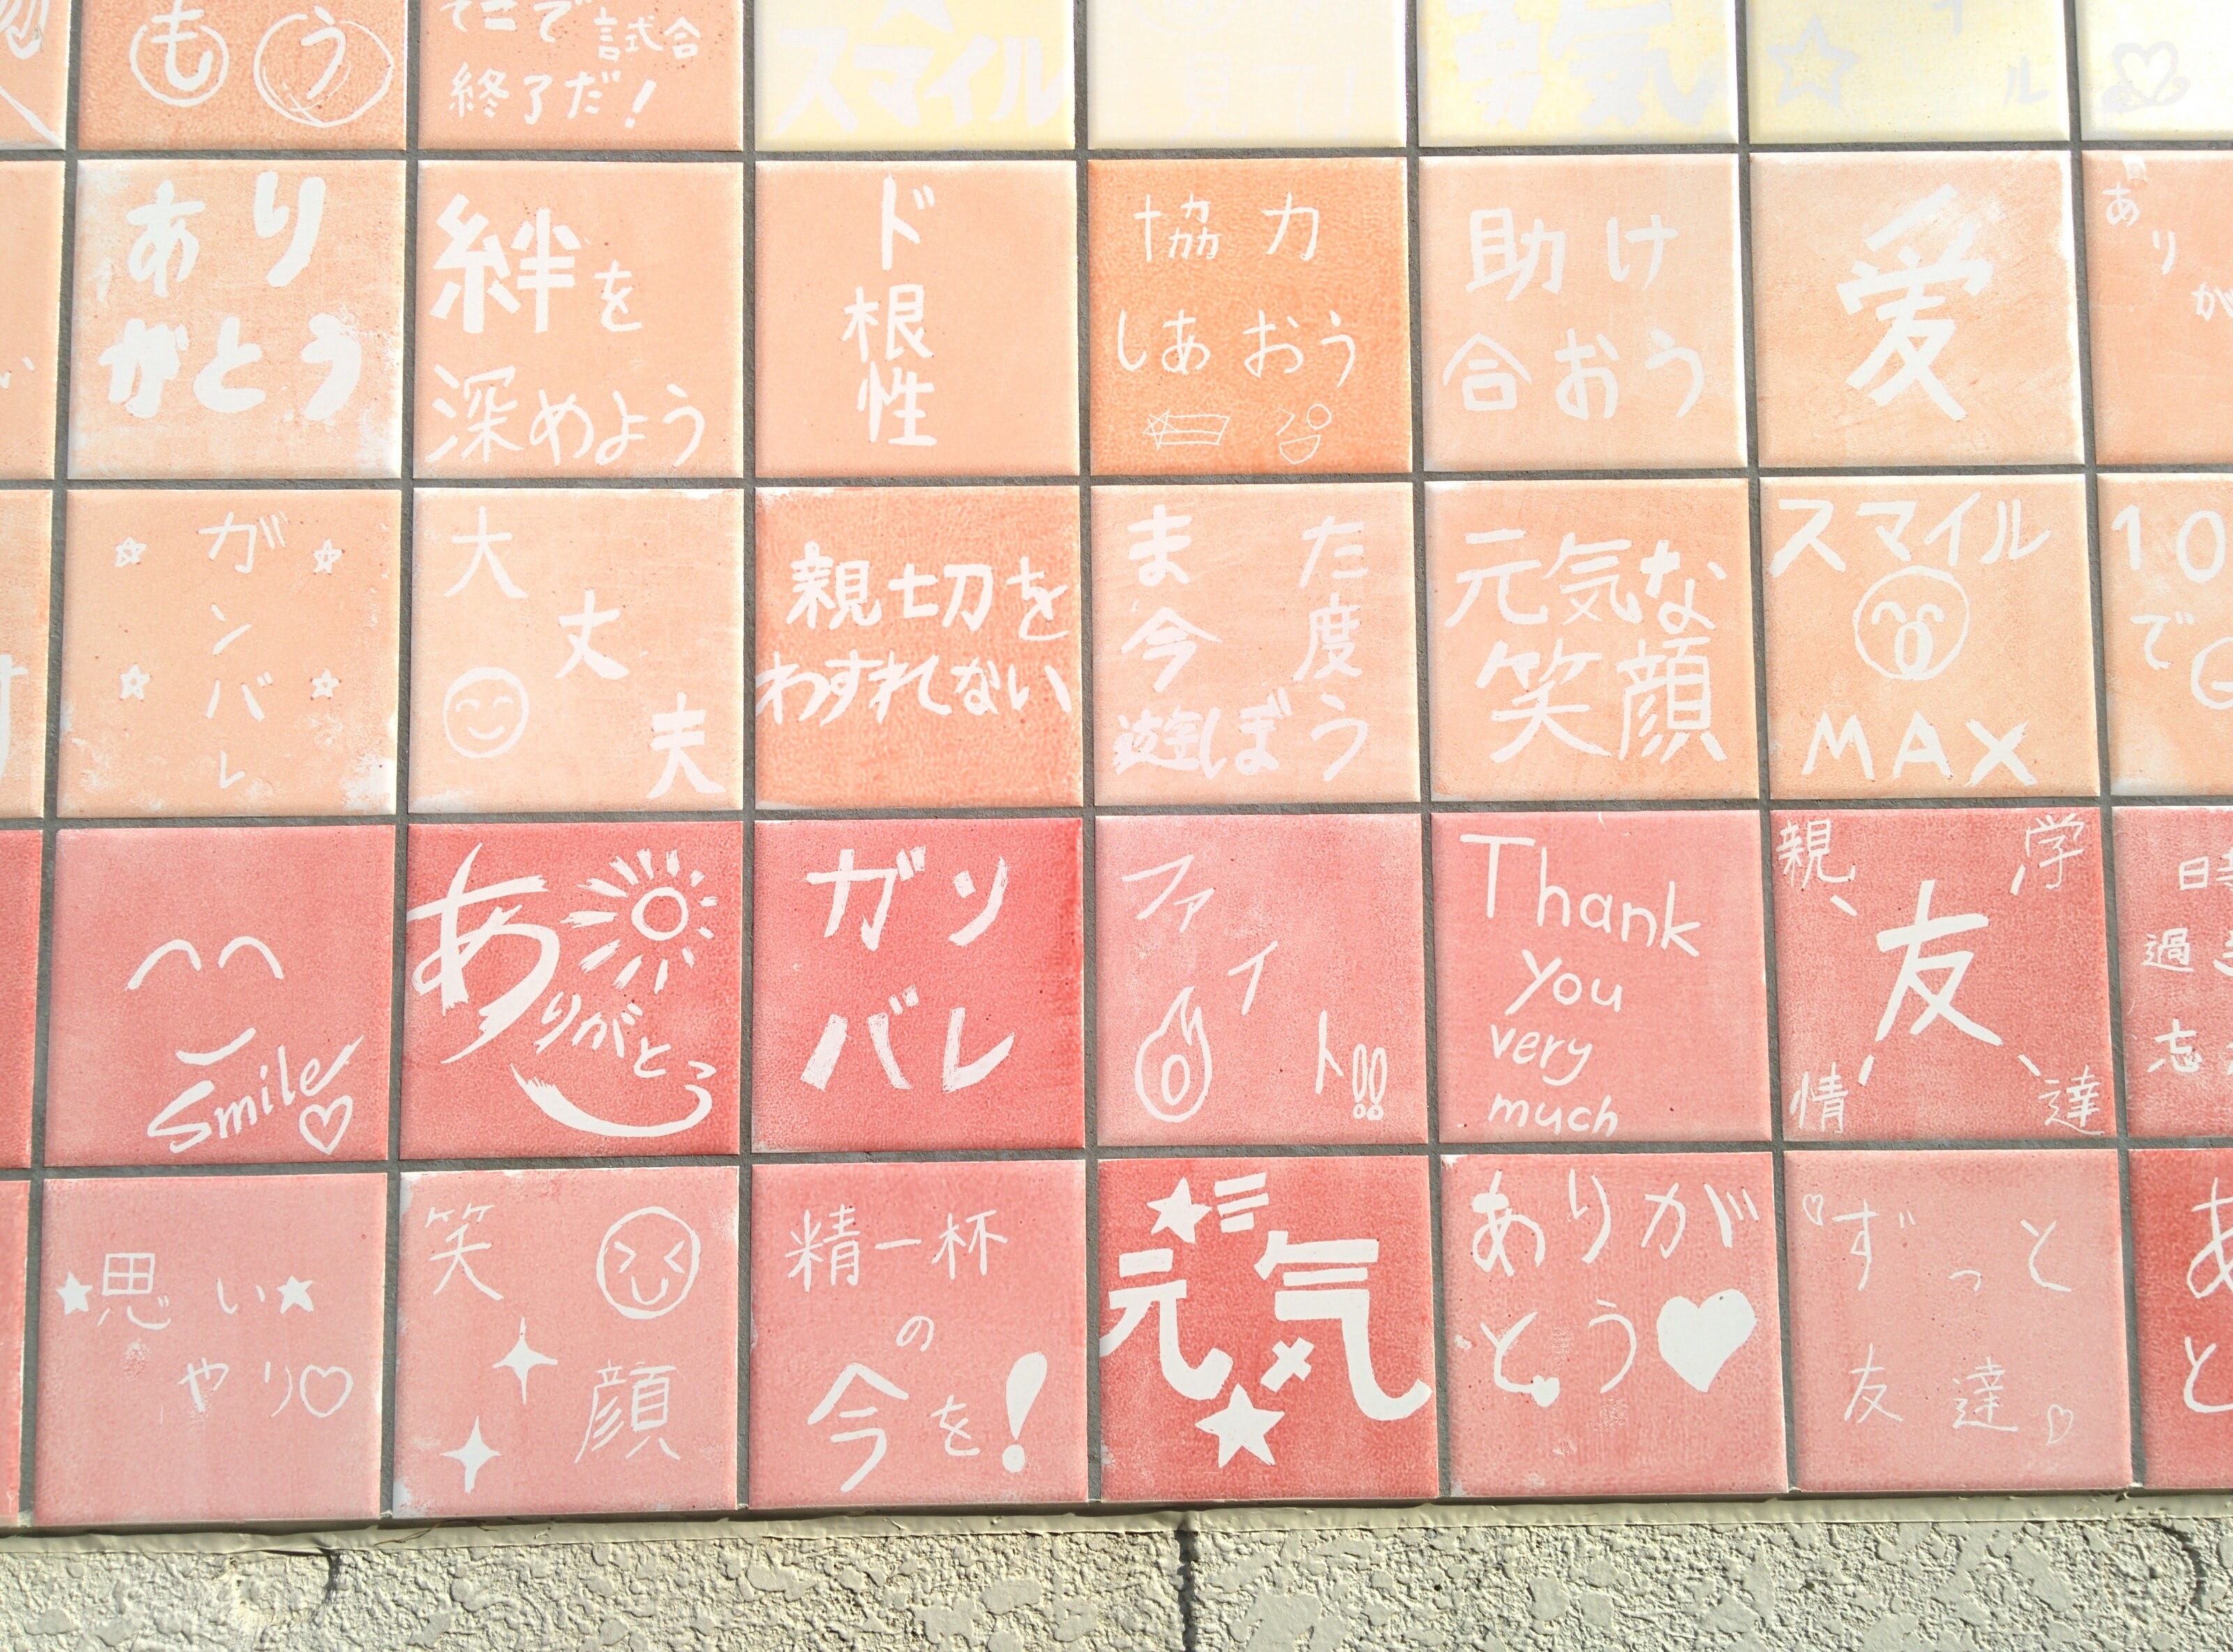 もう
そこで試合
終了だ!
スマイル
男気
ル
あり
がとう
絆を
深めよう
ド
根
性
協力
しあおう
助け
合おう
愛
あ
り
が
ガ
ン
バ
レ
大
丈
夫
親切を
わすれない
また
今度
遊ぼう
元気な
笑顔
スマイル
MAX
10
で
Smile
ありがとう
ガン
バレ
ファ
イ
ト!!
Thank
you
very
much
親、学
友
情達
過
志
思い
やり
笑
顔
精一杯
の
今を!
元気
ありが
とう
ずっと
友達
あ
と